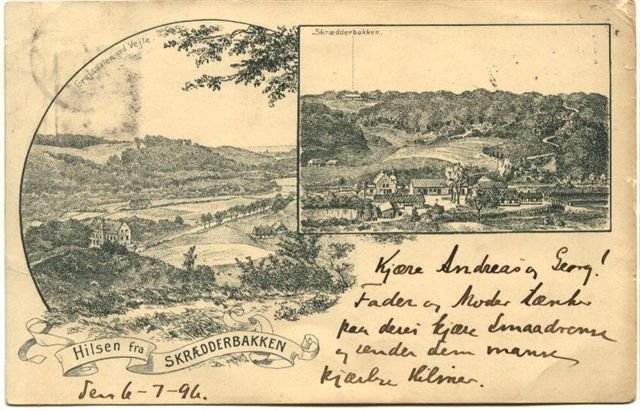 Grejsdalen ved Vejle.
Skrædderbakken.
Kjære Andreas og Georg!
Fader og Moder tænker
paa deres kjære Smaadrenge
og sender dem mange
kjærlige Hilsner.
Hilsen fra SKRÆDDERBAKKEN
den 6-7-96.